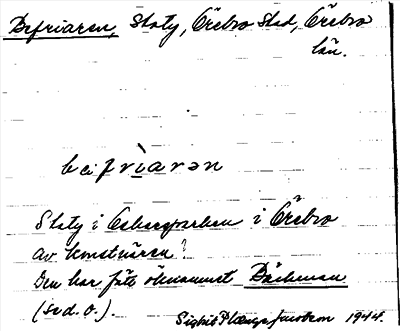 Befriaren, Staty, Örebro Stad, Örebro
län.
befrìarən
Staty i i Örebro
av konstnären?
Den har fått öknamnet Bäckman
(se d. o.).
Sigrid 1944.